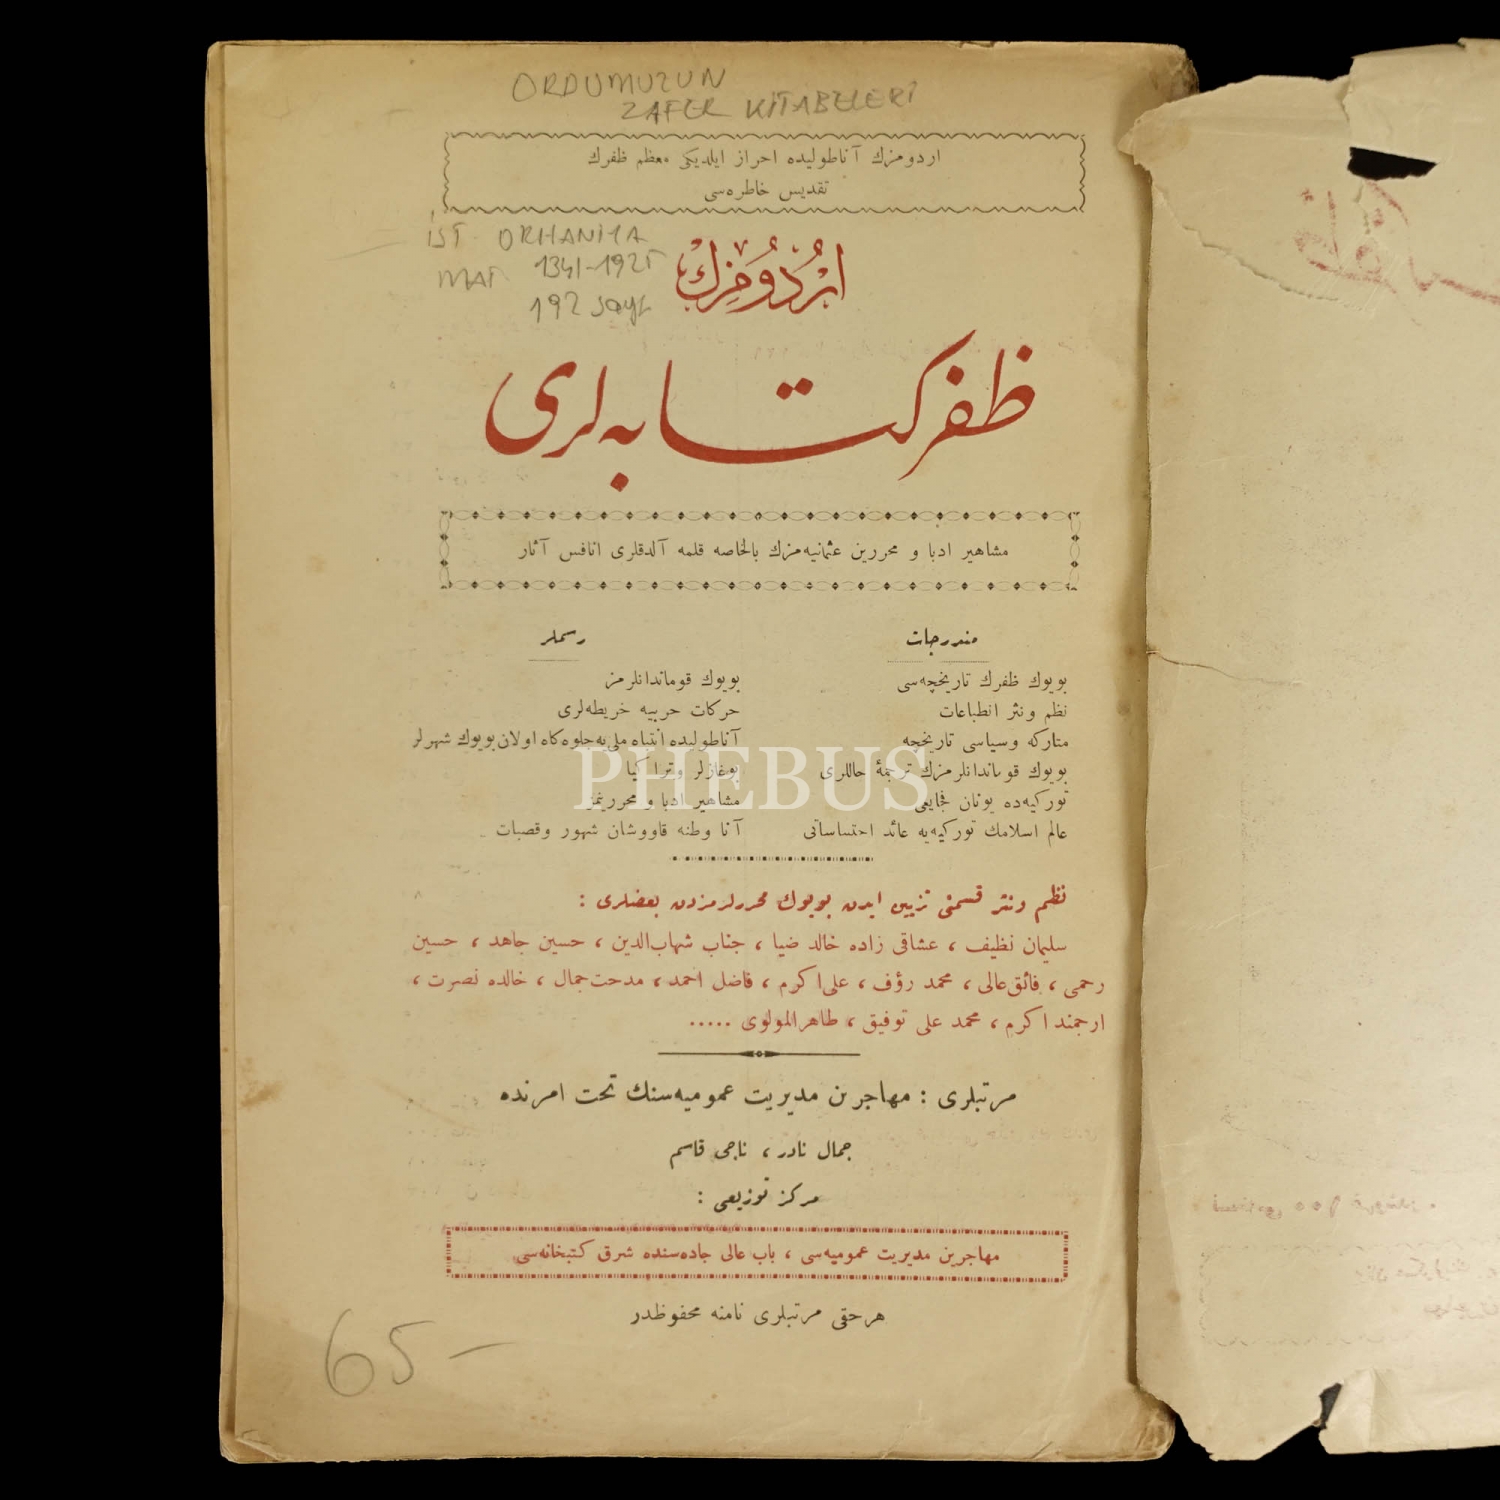 ORDUMUZUN
ZAFER KİTABELERİ
اردومزك آناطولیده احراز ایلدیكی معظم ظفرك
تقدیس خاطره‌سی
İST ORHANİYA
MAT 1341-1925
192 sayf
اردومزك
ظفر كتابه‌لری
مشاهیر ادبا و محررین عثمانیه‌مزك بالخاصه قلمه آلدقلری انافس آثار
مندرجات
بویوك ظفرك تاریخچه‌سی
نظم ونثر انطباعات
متاركه وسیاسی تاریخچه
بویوك قوماندانلرمزك ترجمهٔ حاللری
توركیه‌ده یونان فجایعی
عالم اسلامك توركیه‌یه عائد احتساساتی
رسملر
بویوك قوماندانلرمز
حركات حربیه خریطه‌لری
آناطولیده انتباه ملی‌یه جلوه‌كاه اولان بویوك شهرلر
بوغازلر وتراكیا
مشاهیر ادبا و محررینمز
آنا وطنه قاووشان شهور وقصبات
PHEBUS
نظم ونثر قسمنی تزیین ایدن بویوك محررلرمزدن بعضلری :
سلیمان نظیف ، عشاقی زاده خالد ضیا ، جناب شهاب‌الدین ، حسین جاهد ، حسین
رحمی ، فائق عالی ، محمد رؤف ، علی اكرم ، فاضل احمد ، مدحت جمال ، خالده نصرت ،
ارجمند اكرم ، محمد علی توفیق ، طاهر المولوی .....
مرتبلری : مهاجرین مدیریت عمومیه‌سنك تحت امرنده
جمال نادر ، ناجی قاسم
مركز توزیعی :
مهاجرین مدیریت عمومیه‌سی ، باب عالی جاده‌سنده شرق كتبخانه‌سی
هر حقی مرتبلری نامنه محفوظدر
65 -